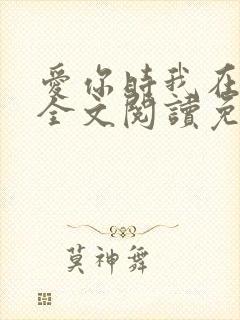 愛你時我在
全文閱讀免
莫神舞